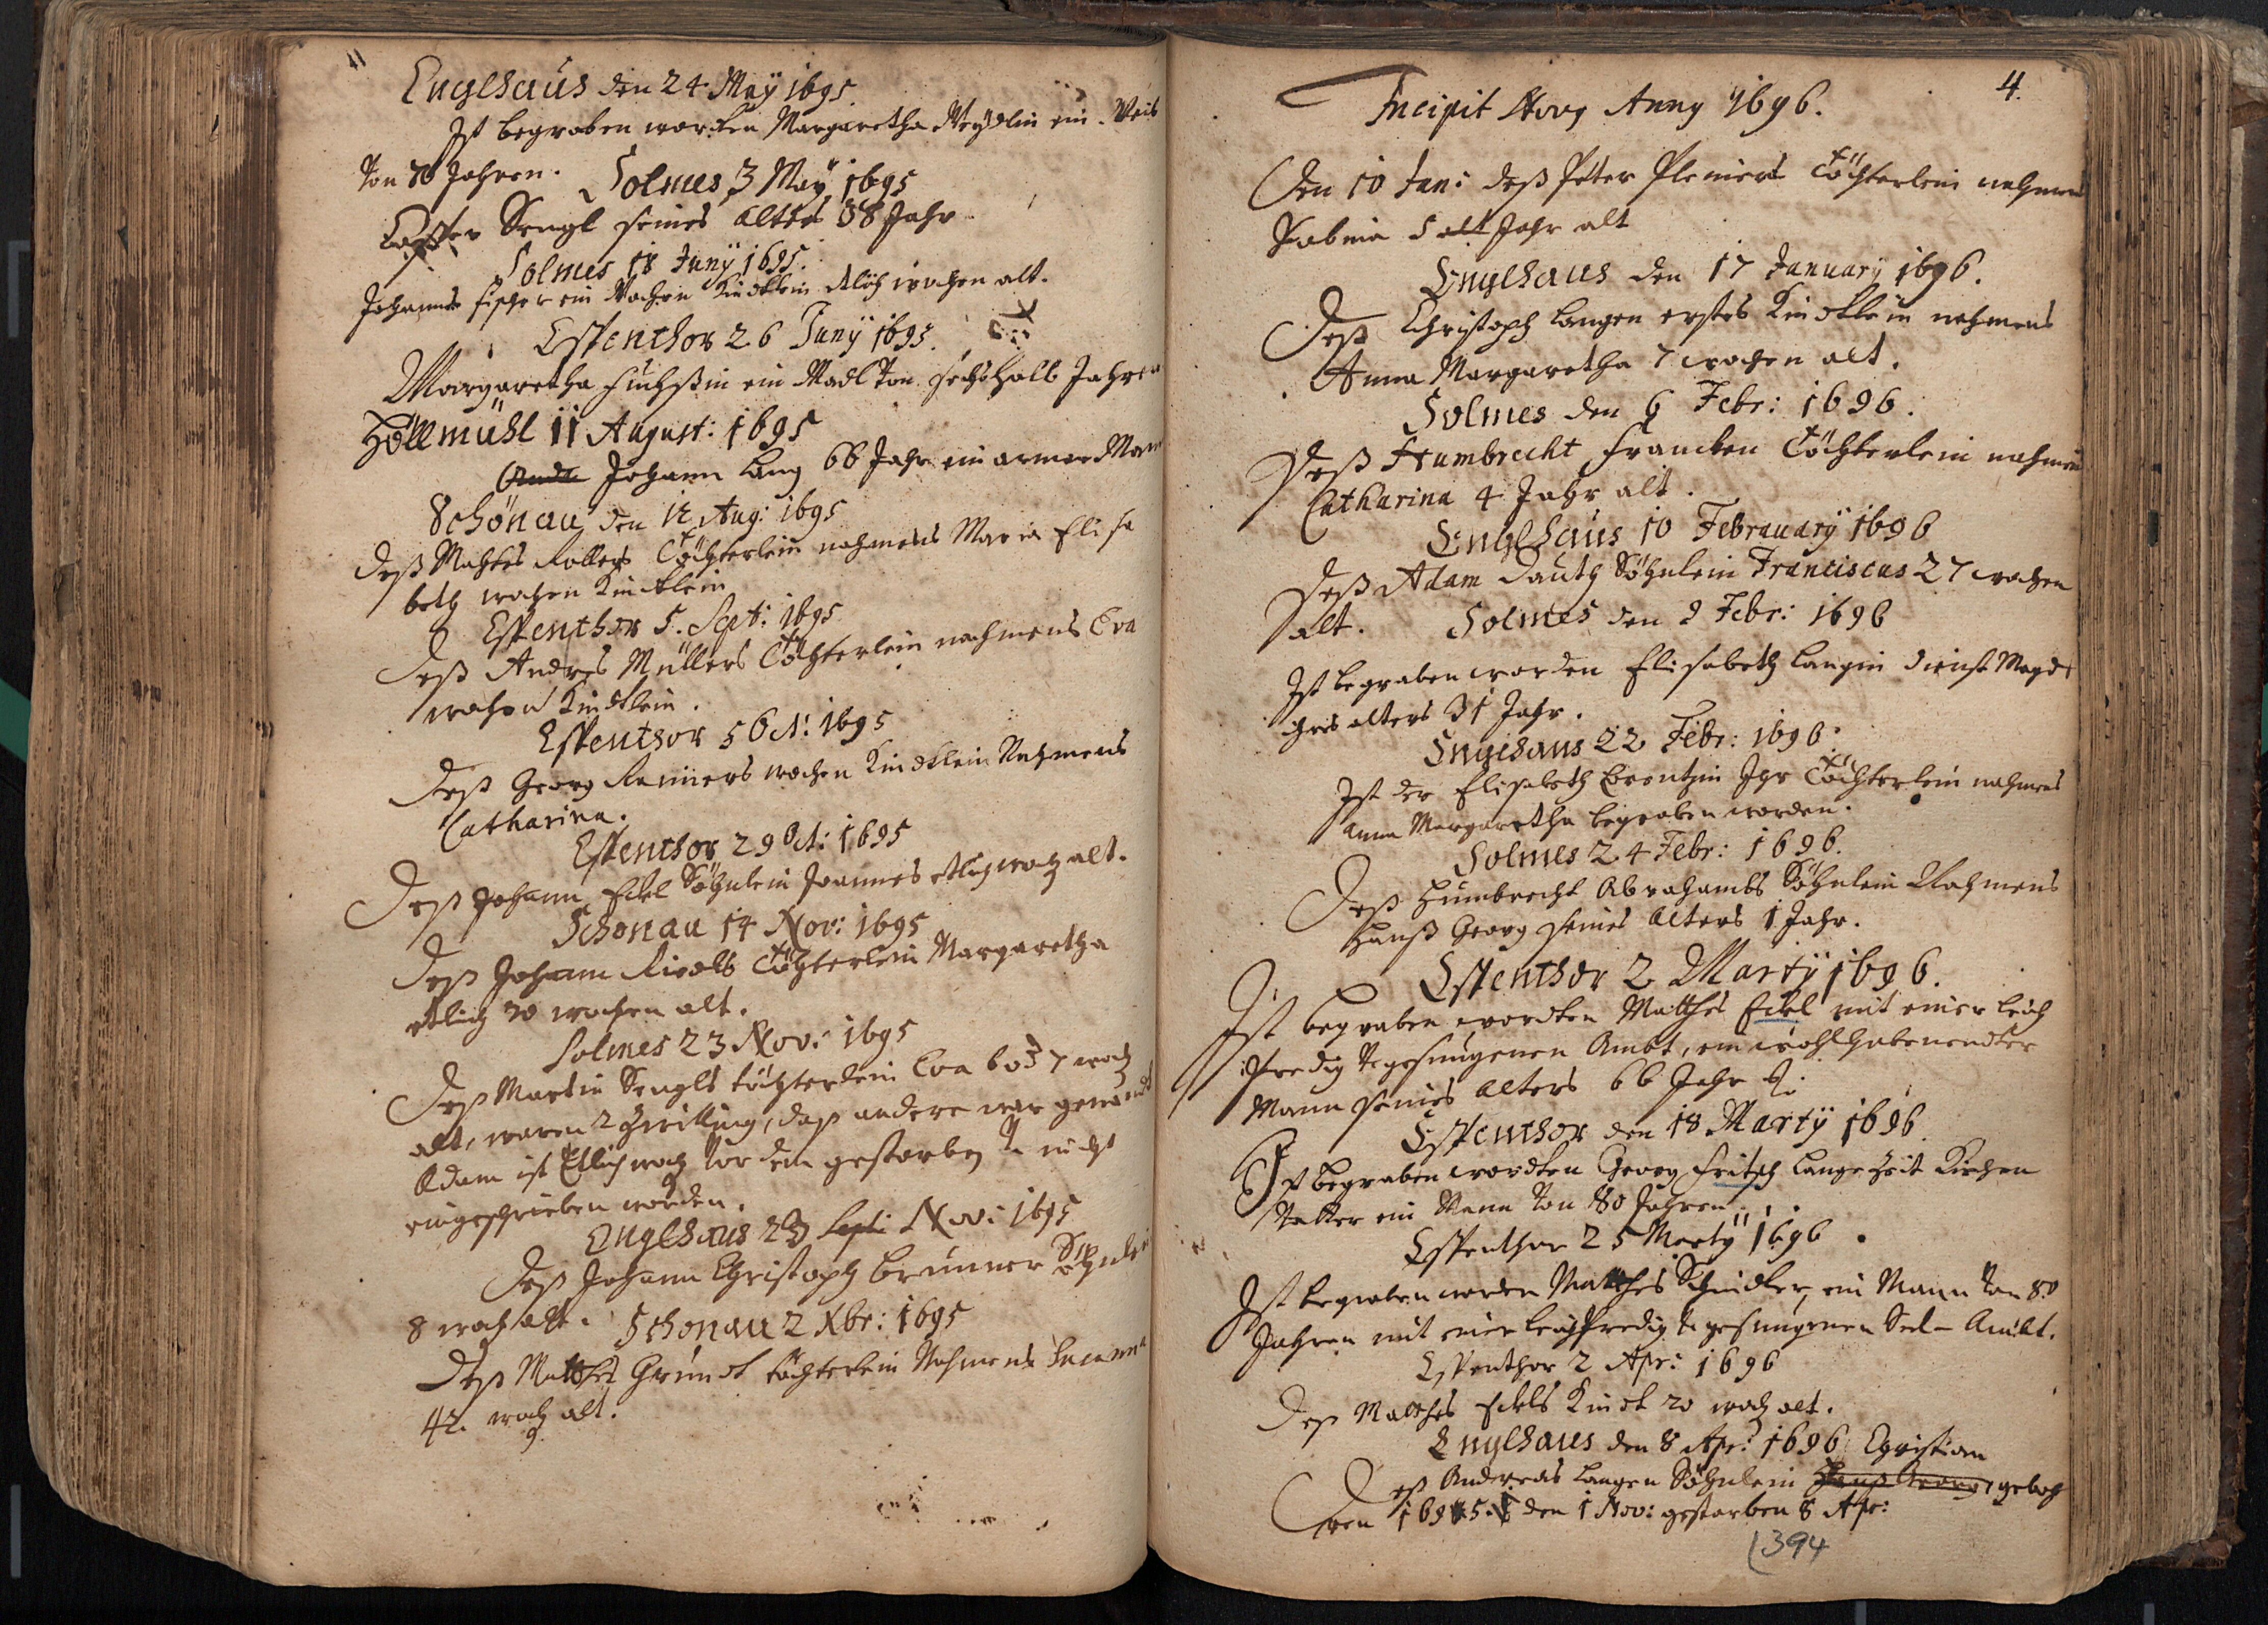 Englhaus den 24 Maÿ 1695
Ist begraben worden Margaretha ein Weib
von 80 Jahren. Solmes 3 Maÿ 1695
Casper Sengl seines alters 38 Jahr
Solmes 18 Junÿ 1695.
Johannes Fischer ein wochen Kindtlein etlich wochen alt.
Espenthor 26 Junÿ 1695.
Margaretha Fuchsin ein Madl von sechshalb Jahren
Höllmühl 11 August: 1695
Johann Lang 66 Jahr ein armer Mann
Schönau den 12 Aug: 1695
Deß Mathes Töchterlein nahmens Maria Elisa
beth wochen Kindtlein
Espenthor 5. Sept: 1695
Deß Andres Müllers Töchterlein nachmens Eva
wochen Kindtlein.
Espenthor 5 Oct: 1695
Deß Georg wochen Kindtlein Nahmens
Catharina.
Espenthor 29 Oct: 1695
Deß Johann Eckl Söhnlein Joannes etlich woch alt.
Schonau 14 Nov: 1695
Deß Johann Riedls Töchterlein Margaretha
etlich 20 wochen alt.
Solmes 23 Nov: 1695
Deß Martin Sengls töchterlein Eva 6 oder 7 woch
alt, waren 2 Zwilling, daß andere war genandt
Adam ist Etlich woch vor dem gestorben v. nicht
eingeschrieben worden.
Englhaus 23 Sept: Nov: 1695
Deß Johann Christoph Brunner Söhnlein
8 woch alt. Schonau 2 Xbr: 1695
Deß Mathes Gründt töchterlein Nahmens Susanna
42. woch alt.
4.
Incipit Novg Anny 1696.
Den 10 Jan: deß Peter Pleniers Töchterlein nahmens
Sabina 5 alt Jahr alt
Englhaus den 17 January 1696.
Deß Christoph Langen erstes Kindtlein nahmens
Anna Margaretha 7 wochen alt.
Solmes den 6 Febr: 1696.
Deß Humbrecht Francken Töchterlein nahmens
Catharina 4 Jahr alt.
Englhaus 10 Februarÿ 1696
Deß Adam Dauth Söhnlein Franciscus 27 wochen
alt. Solmes den 9 Febr: 1696
Ist begraben worden Elisabeth Langin dienst Magdt
ihres alters 31 Jahr.
Englhaus 22 Febr: 1696.
Ist der Elisabeth Ihr Töchterlein nahmens
Anna Margaretha begraben worden.
Solmes 24 Febr: 1696.
Deß Humbrecht Abrahambs Söhnlein Nahmens
Hanß Georg seines alters 1 Jahr.
Espenthor 2 Martÿ 1696.
Ist begraben wordten Matthes Eckl mit einer leich
Predig v. gesungenen Ambt, ein wohlhabenendter
Mann seines alters 66 Jahr
Espenthor den 18 Martÿ 1696.
Ist begraben wordten Georg Fritsch lange Zeit Kirchen
Vatter ein Mann von 80 Jahren.
Espenthor 25 Martÿ 1696.
Ist begraben worden Matthes Schindler, ein Mann von 80
Jahren mit einer leichPredig v. gesungenen Seel-Ambt.
Espenthor 2 Apr: 1696
Deß Matthes Eckls Kindt 20 woch alt.
Englhaus den 8 Apr: 1696 Christian
Deß Andreas Langen Söhnlein Hanß Georg geboh
ren 1695. den 1 Nov: gestorben 8 Apr:
394